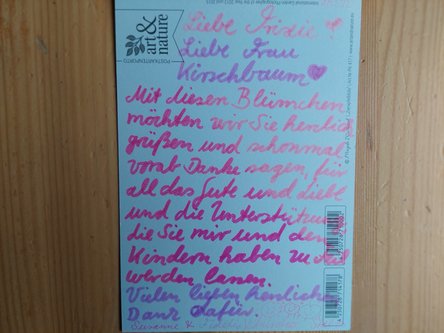 art &
nature
POSTKARTENPORTO
Liebe
Liebe Frau
Kirschbaum
Mit diesen Blümchen
möchten wir Sie herzlich
grüßen und schonmal
vorab Danke sagen, für
all das Gute und Liebe
und die Unterstützung
die Sie mir und den
Kindern haben zu teil
werden lassen.
Vielen lieben herzlichen
Dank dafür.
Susanne &